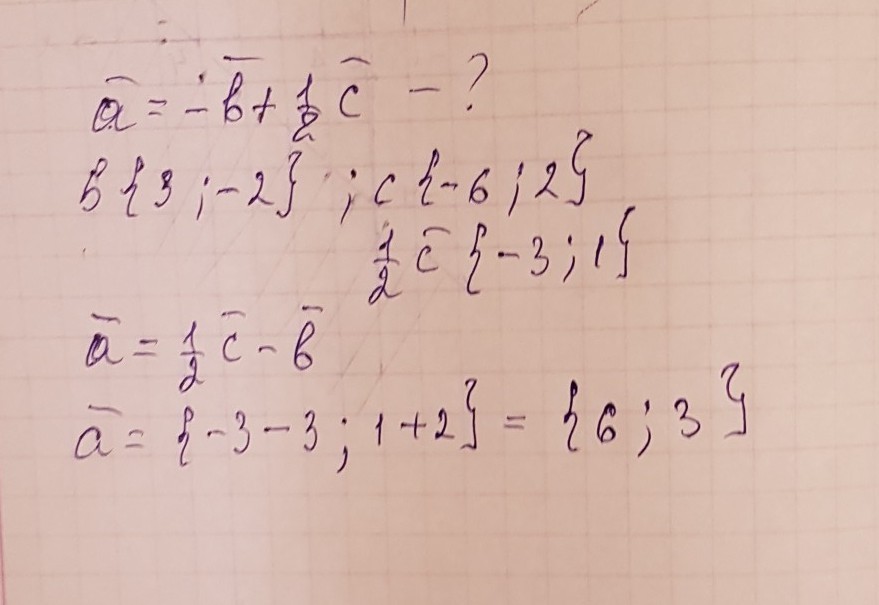 a̅ = -b̅ + 1/2 c̅ - ?
b {3 ; -2} ; c {-6 ; 2}
1/2 c̅ {-3 ; 1}
a̅ = 1/2 c̅ - b̅
a̅ = {-3-3 ; 1+2} = {6 ; 3}